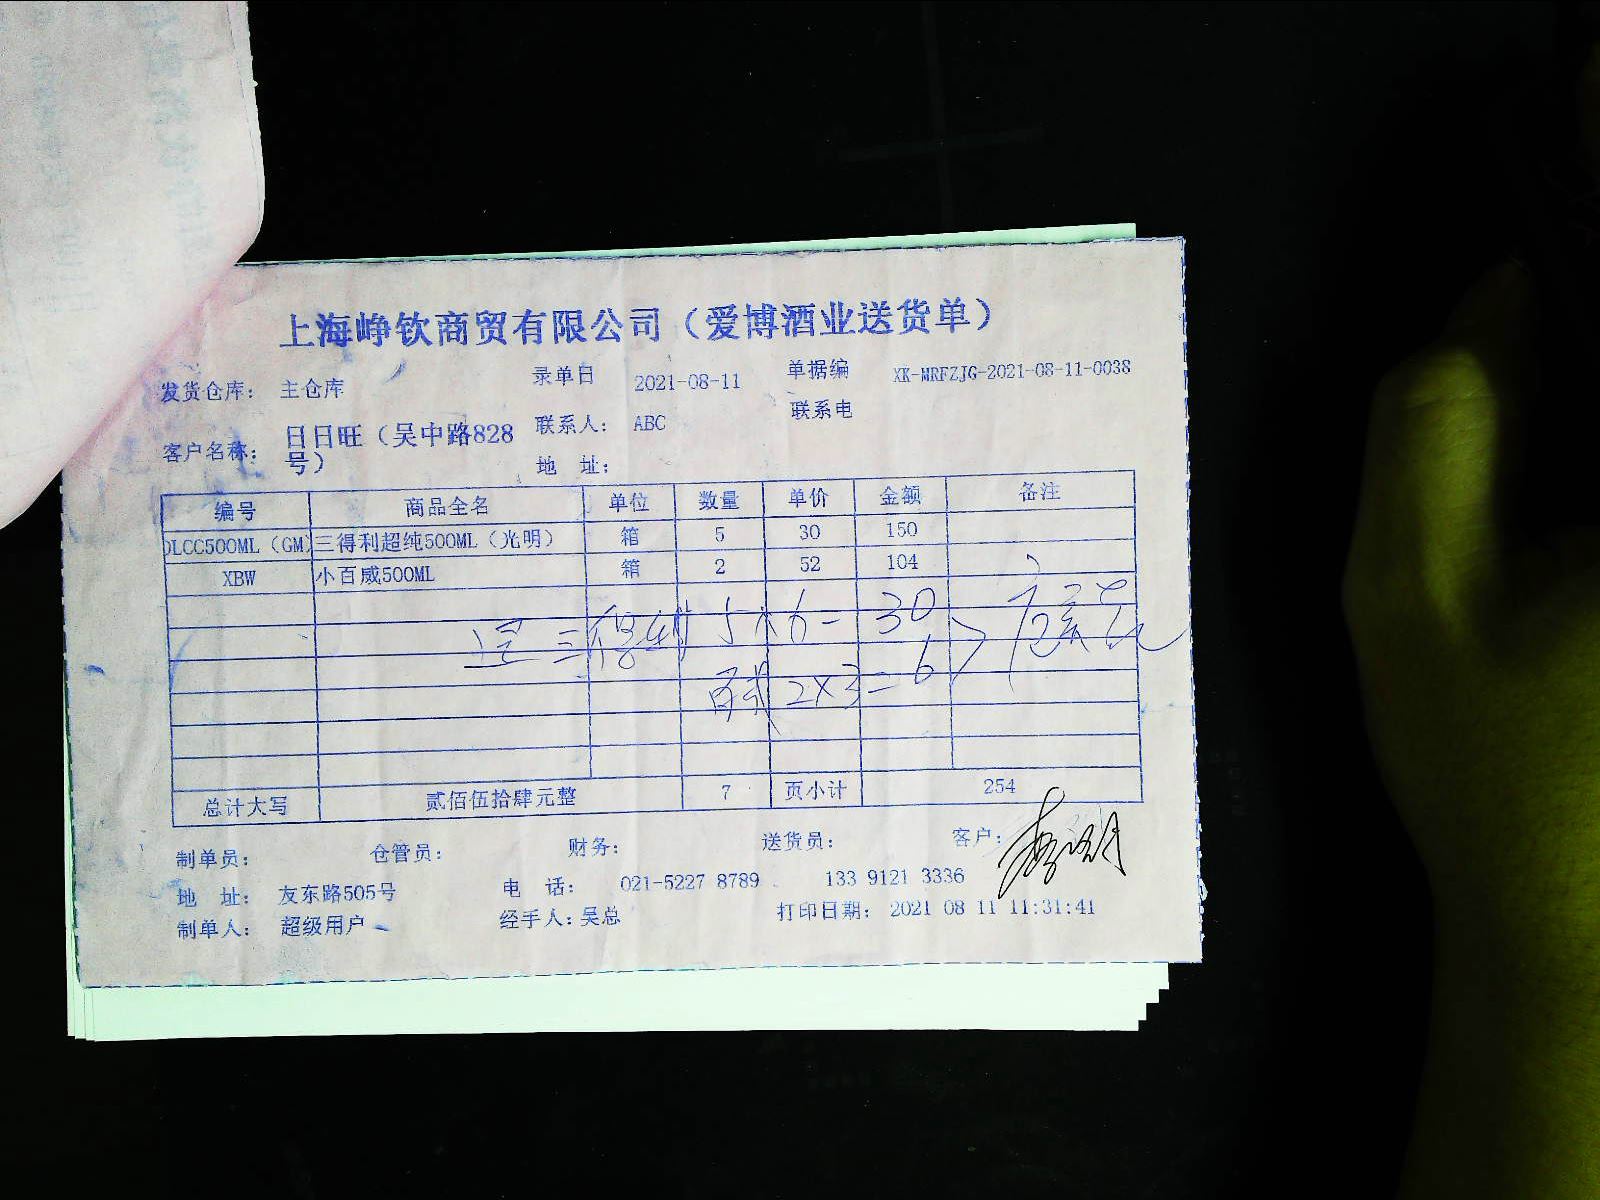 上海峥钦商贸有限公司（爱博酒业送货单）
发货仓库： 主仓库 录单日 2021-08-11 单据编 XK-MRFZJG-2021-08-11-0038
客户名称： 日日旺（吴中路828号） 联系人： ABC 联系电
地 址：
编号 商品全名 单位 数量 单价 金额 备注
DLCC500ML（GM） 三得利超纯500ML（光明） 箱 5 30 150
XBW 小百威500ML 箱 2 52 104
三得利 5×6= 30
百威 2×3= 6
总计大写 贰佰伍拾肆元整 7 页小计 254
制单员： 仓管员： 财务： 送货员： 客户：
地 址： 友东路505号 电 话： 021-5227 8789 133 9121 3336
制单人： 超级用户 经手人：吴总 打印日期： 2021 08 11 11:31:41